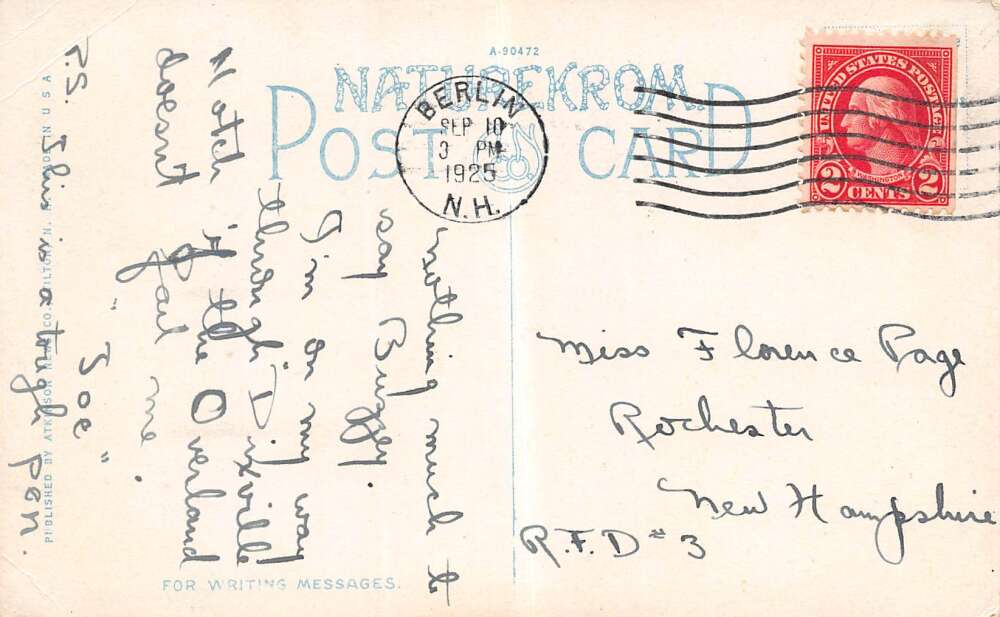 A-90472
NATUREKROM
POST CARD
BERLIN
SEP 10
3 PM
1925
N.H.
UNITED STATES POSTAGE
WASHINGTON
2 CENTS 2
nothing much to
say Buggy
I'm on my way
through Dixville
Notch if the Overland
doesnt fail me.
"Joe"
P.S. This is a tough pen.
Miss Florence Page
Rochester
New Hampshire
R.F.D #3
FOR WRITING MESSAGES.
PUBLISHED BY ATKINSON NEWS CO. TILTON, N.H. IN U S A